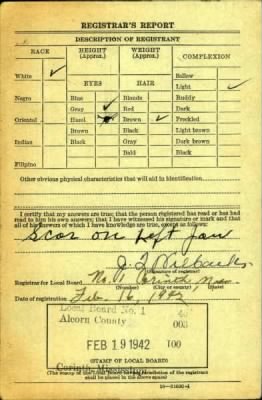 REGISTRAR'S REPORT
DESCRIPTION OF REGISTRANT
RACE HEIGHT (Approx.) WEIGHT (Approx.) COMPLEXION
White ✓
EYES HAIR
Sallow
Light ✓
Negro Blue Blonde Ruddy
Gray ✓ Red Dark
Oriental Hazel Brown ✓ Freckled
Brown Black Light brown
Indian Black Gray Dark brown
Bald Black
Filipino
Other obvious physical characteristics that will aid in identification
I certify that my answers are true; that the person registered has read or has had
read to him his own answers; that I have witnessed his signature or mark and that
all of his answers of which I have knowledge are true, except as follows:
Scar on Left Jaw
(Signature of registrar)
Registrar for Local Board No. 1 Corinth Miss.
(Number) (City or county) (State)
Date of registration Feb. 16, 1942
Local Board No. 1
Alcorn County
FEB 19 1942
Corinth, Mississippi
STAMP OF LOCAL BOARD
(The stamp of the Local Board having jurisdiction of the registrant
shall be placed in the above space)